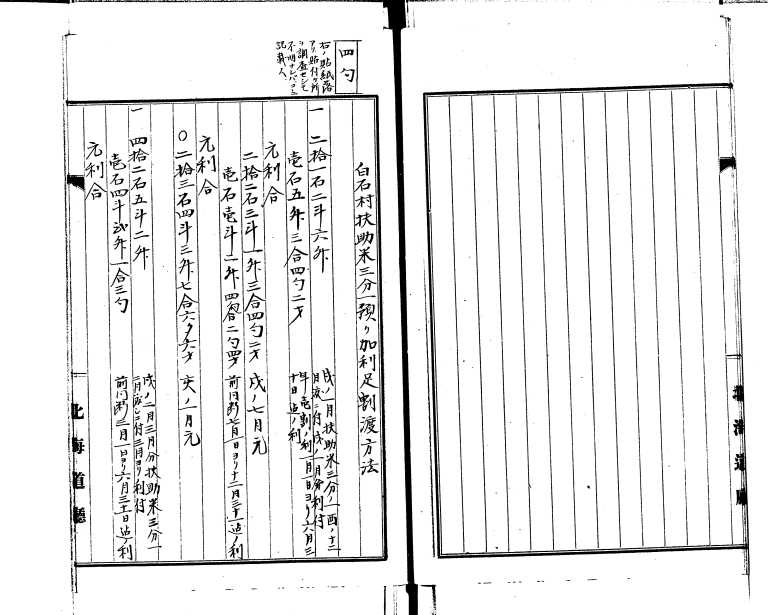 四勺
右ノ貼紙落
アリ貼付ケ所
ヲ調査セシモ
不明ナレバココニ
記載ス、
白石村扶助米三分一預リ加利足割渡方法
一 二拾一石二斗六升
戌ノ一月扶助米三分ノ一酉ノ十二
月渡ニ付戌ノ一月ヨリ利付
壱石五升三合四勺二才
年壱割ノ利一月一日ヨリ六月三
十日迠ノ利
元利合
二拾二石三斗一升三合四勺二才 戌ノ七月元
壱石壱斗一升四合二勺四才 前同断七月一日ヨリ十二月三十一迠ノ利
元利合
〇二拾三石四斗三升七合六夕六才 亥ノ一月元
一 四拾二石五斗二升
戌ノ二月三月分扶助米三分一
二月渡シニ付三月ヨリ利付
壱石四斗弐升一合三勺
前同断三月一日ヨリ六月三十日迠ノ利
元利合
北海道廳
北海道廳